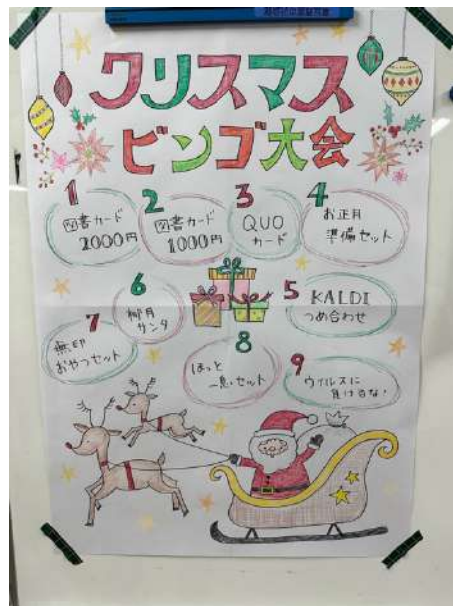 クリスマス
ビンゴ大会
1
図書カード
2000円
2
図書カード
1000円
3
QUO
カード
4
お正月
準備セット
5
KALDI
つめ合わせ
6
柳月
サンタ
7
無印
おやつセット
8
ほっと
一息セット
9
ウイルスに
負けるな!